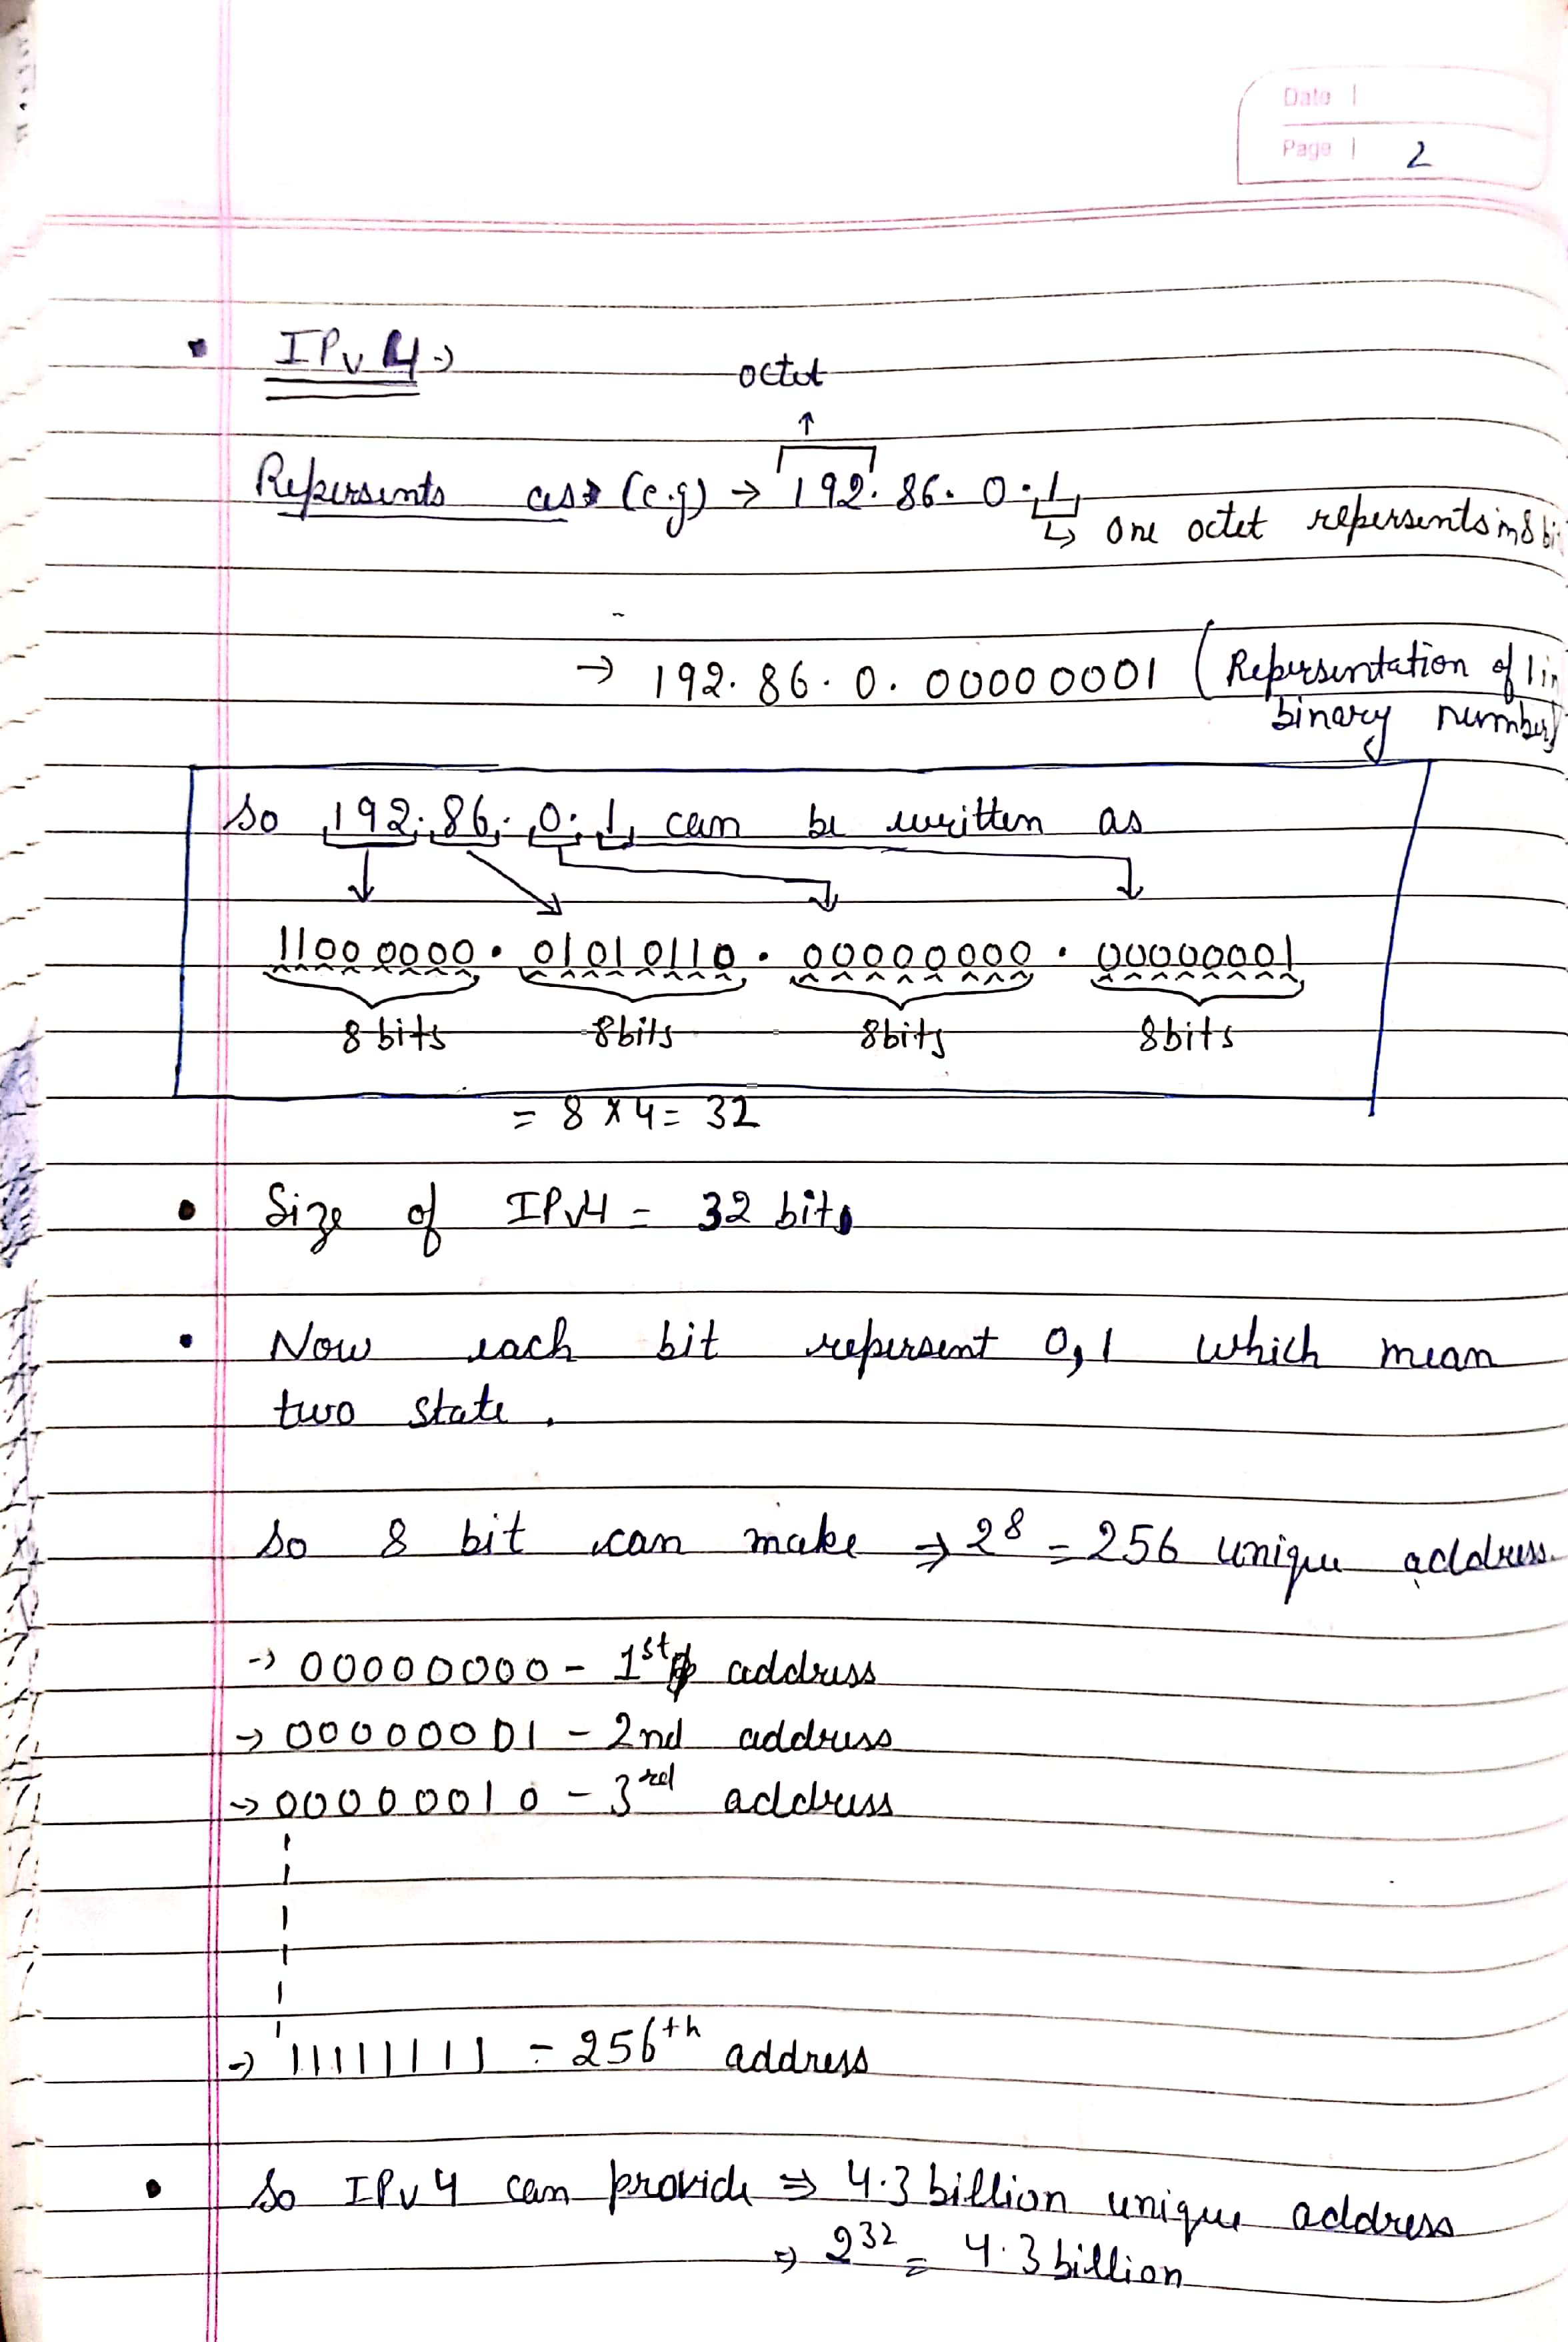 Date
Page 2
• IPv4 →
octet
↑
Repersents as → (e.g) → 192.86.0.1
↳ one octet repersents in 8 bi
→ 192.86.0.00000001 (Repersentation of 1 in
binary number)
So 192.86.0.1 can be written as
11000000.01010110.00000000.00000001
8 bits 8bits 8bits 8bits
= 8 x 4 = 32
• Size of IPv4 = 32 bits
• Now each bit repersent 0,1 which mean
two state.
So 8 bit can make ⇒ 2⁸ = 256 unique address.
→ 00000000 - 1st address
→ 00000001 - 2nd address
→ 00000010 - 3rd address
→ 11111111 - 256th address
• So IPv4 can provide ⇒ 4.3 billion unique address
⇒ 2³² = 4.3 billion